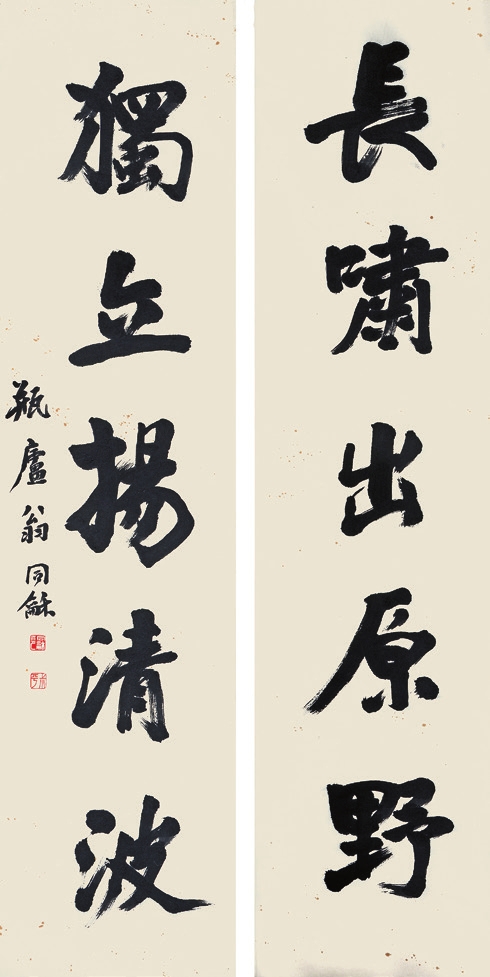 長嘯出原野
獨立揚清波
瓶廬翁同龢